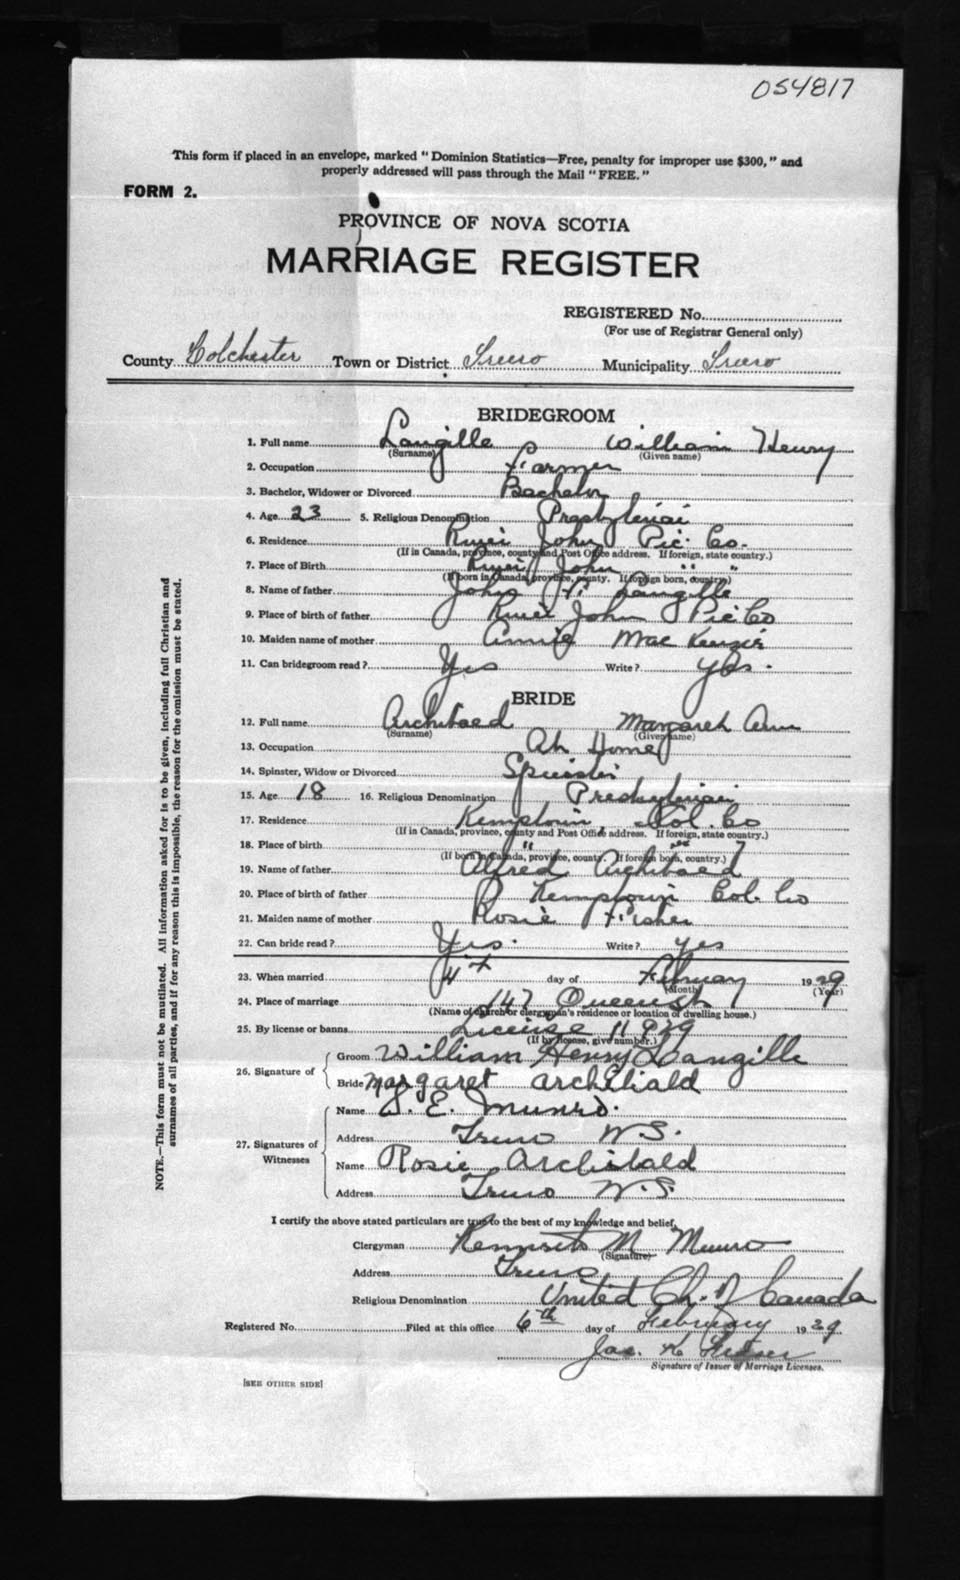 054817
This form if placed in an envelope, marked "Dominion Statistics—Free, penalty for improper use $300," and
properly addressed will pass through the Mail "FREE."
FORM 2.
PROVINCE OF NOVA SCOTIA
MARRIAGE REGISTER
REGISTERED No.
(For use of Registrar General only)
County Colchester Town or District Truro Municipality Truro
BRIDEGROOM
1. Full name Langille William Henry
(Surname) (Given name)
2. Occupation Farmer
3. Bachelor, Widower or Divorced Bachelor
4. Age 23 5. Religious Denomination Presbyterian
6. Residence River John Pic. Co.
(If in Canada, province, county and Post Office address. If foreign, state country.)
7. Place of Birth River John " "
(If born in Canada, province, county. If foreign born, country.)
8. Name of father John H. Langille
9. Place of birth of father River John Pic Co
10. Maiden name of mother Annie Mac Kenzie
11. Can bridegroom read? Yes Write? yes.
BRIDE
12. Full name Archibald Margaret Ann
(Surname) (Given name)
13. Occupation At Home
14. Spinster, Widow or Divorced Spinster
15. Age 18 16. Religious Denomination Presbyterian
17. Residence Kemptown, Col. Co
(If in Canada, province, county and Post Office address. If foreign, state country.)
18. Place of birth " "
(If born in Canada, province, county. If foreign born, country.)
19. Name of father Alfred Archibald
20. Place of birth of father Kemptown Col. Co
21. Maiden name of mother Rosie Fisher
22. Can bride read? Yes. Write? yes
23. When married 4th day of February 1929
(Month) (Year)
24. Place of marriage 147 Queen St
(Name of church or clergyman's residence or location of dwelling house.)
25. By license or banns License 11929
(If by license, give number.)
26. Signature of
Groom William Henry Langille
Bride Margaret Archibald
27. Signatures of Witnesses
Name E. Munro.
Address Truro N.S.
Name Rosie Archibald
Address Truro N.S.
I certify the above stated particulars are true to the best of my knowledge and belief,
Clergyman Kenneth M Munro
(Signature)
Address Truro
Religious Denomination United Ch. of Canada
Registered No. Filed at this office 6th day of February 1929
Jas. K
Signature of Issuer of Marriage Licenses.
[SEE OTHER SIDE]
NOTE.—This form must not be mutilated. All information asked for is to be given, including full Christian and
surnames of all parties, and if for any reason this is impossible, the reason for the omission must be stated.